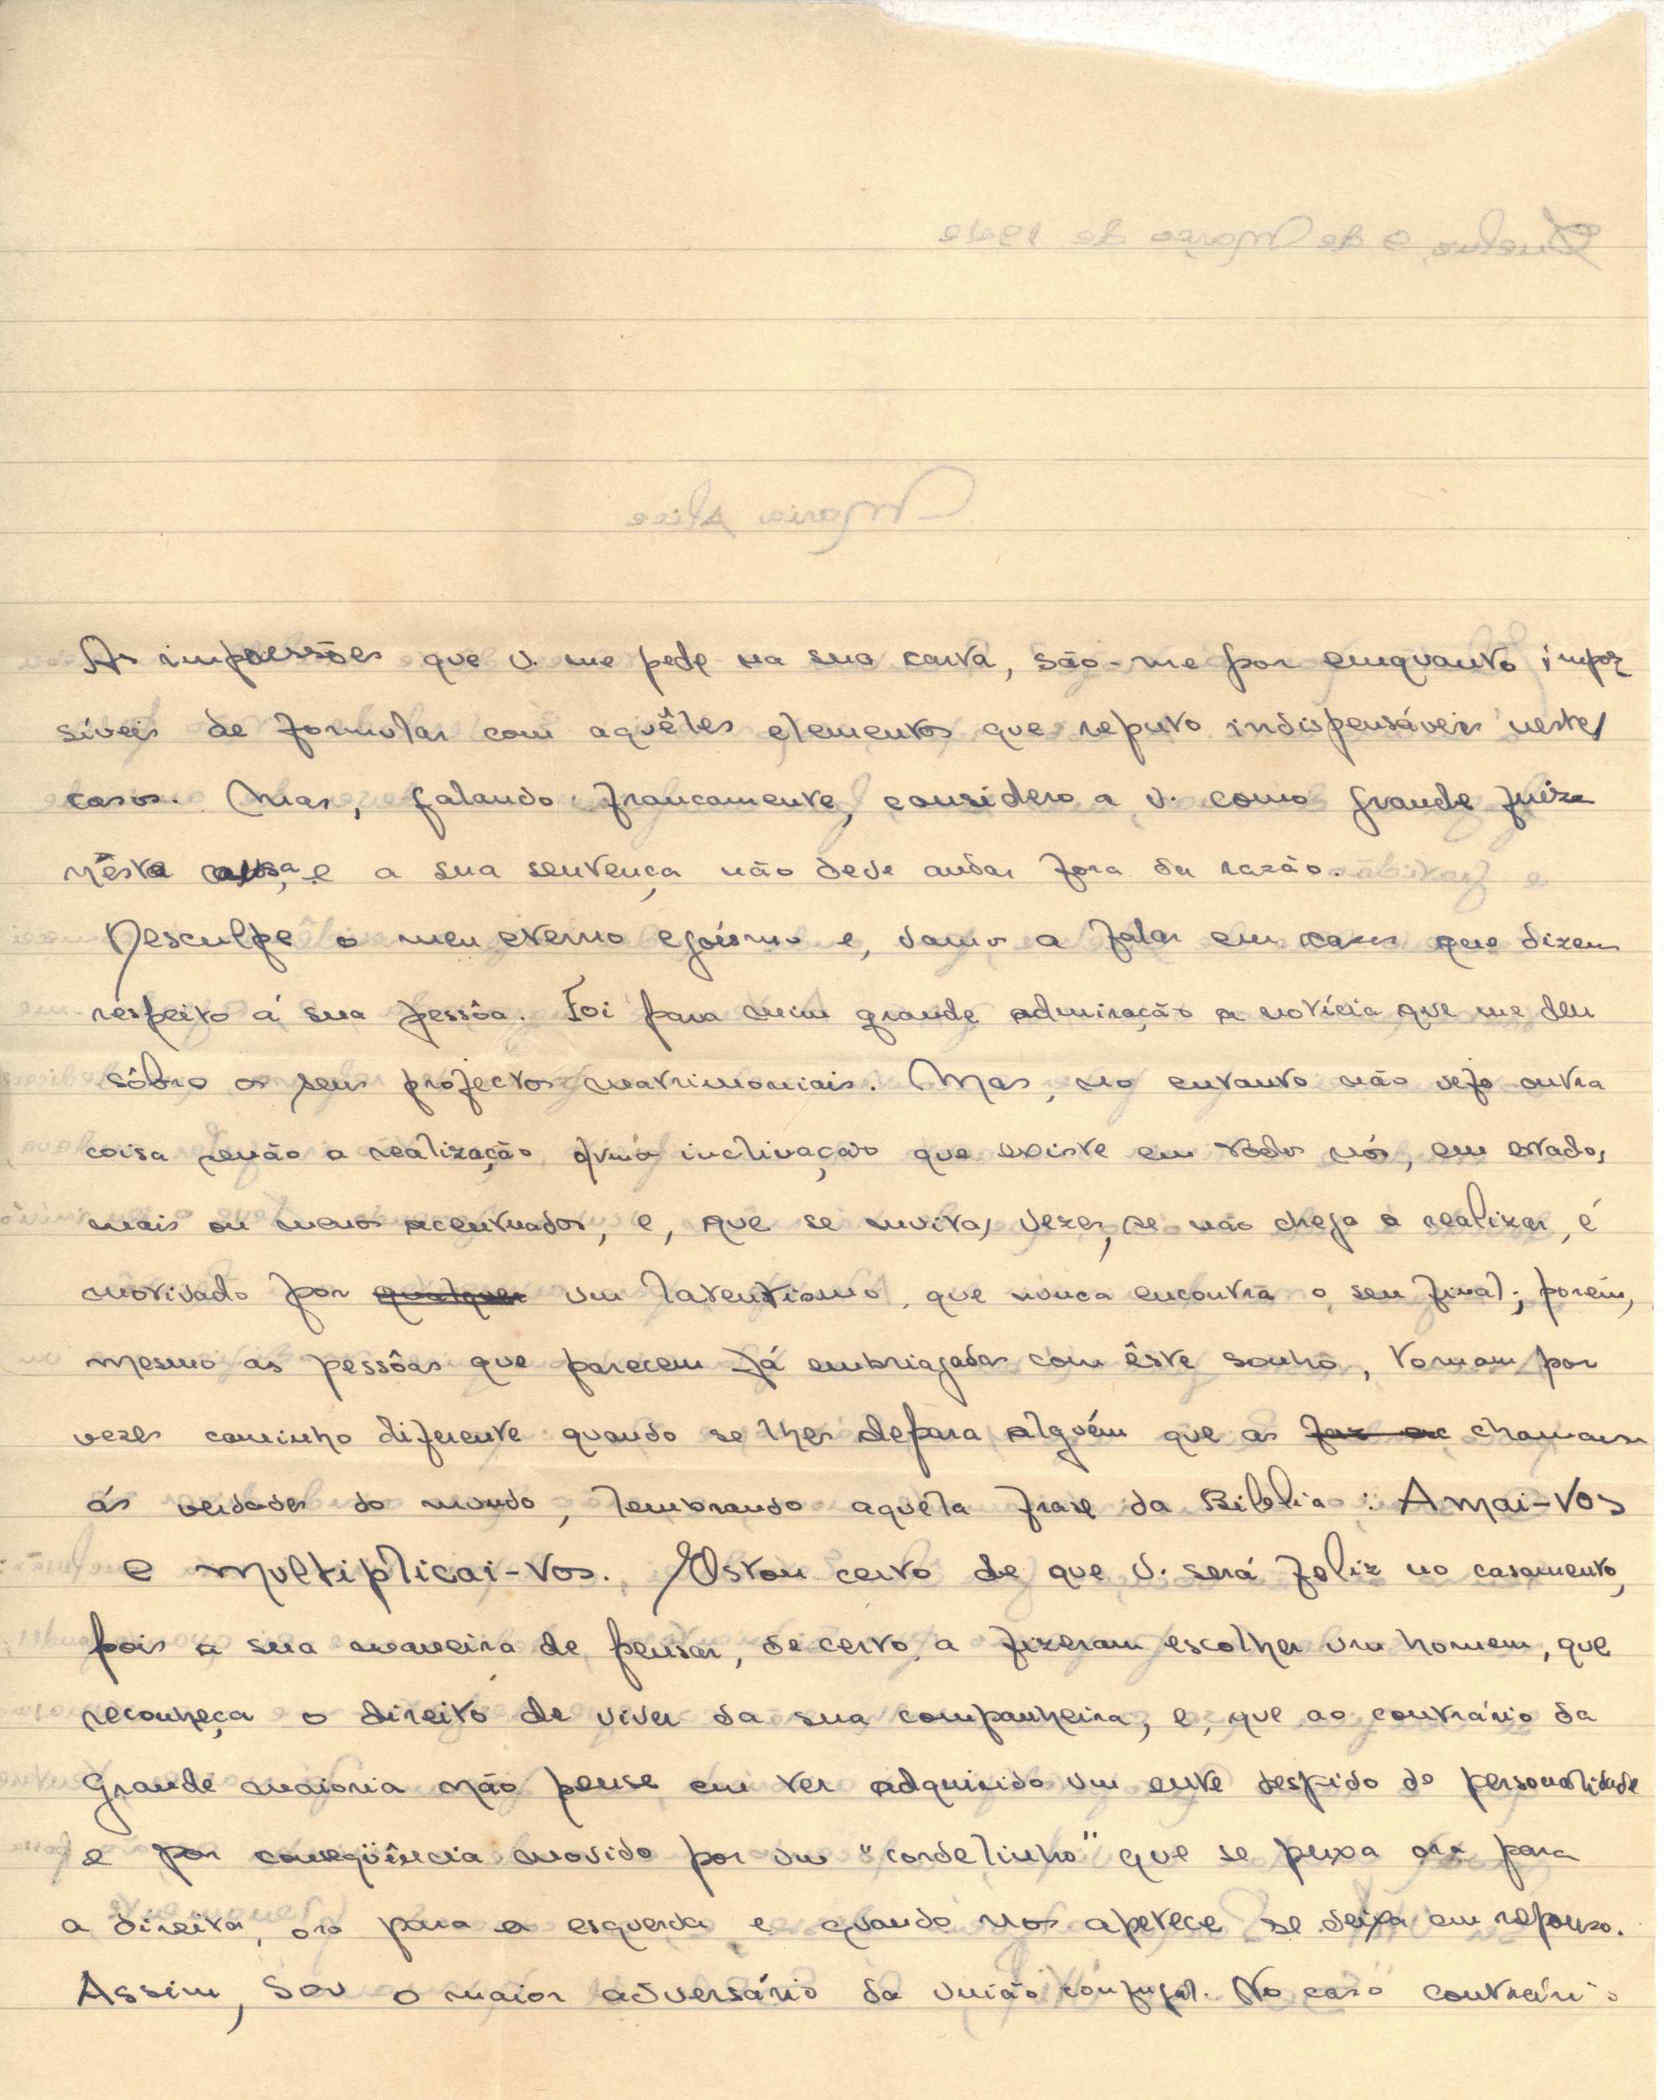 As impressões que v. me pede na sua carta, são-me por emquanto impos
síveis de formular com aquêles elementos que reputo indispensáveis nestes
casos. Mas, falando francamente, considero a v. como grande juiza
nésta causa, e a sua sentença não deve andar fora da razão.
Desculpe o meu eterno egoísmo e, vamos a falar em casos que dizem
respeito á sua pessôa. Foi para mim grande admiração a notícia que me deu
sôbre os seus projectos matrimoniais. Mas, no entanto não vejo outra
coisa senão a realização duma inclinação que existe em todos nós, em estados,
mais ou menos acentuados, e, que se muitas vezes, se não chega a realizar, é
motivado por qualquer um latentismo, que nunca encontra o seu final; porém,
mesmo as pessôas que parecem já embriagadas com êste sonho, tomam por
vezes caminho diferente quando se lhes depara alguém que as faz chamarem
ás verdades do mundo, lembrando aquela frase da Biblia: Amai-Vos
e multiplicai-vos. Estou certo de que v. será feliz no casamento,
pois a sua maneira de pensar, de certo a fizeram escolher um homem, que
reconheça o direito de viver da sua companheira, e, que ao contrário da
grande maioria não pense em ter adquirido um ente despido de personalidade
e por conseqüência movido por um "cordelinho" que se puxa ora para
a direita, ora para a esquerda e quando nos apetece se deixa em repouso.
Assim, sou o maior adversário da união conjugal. No caso contrário